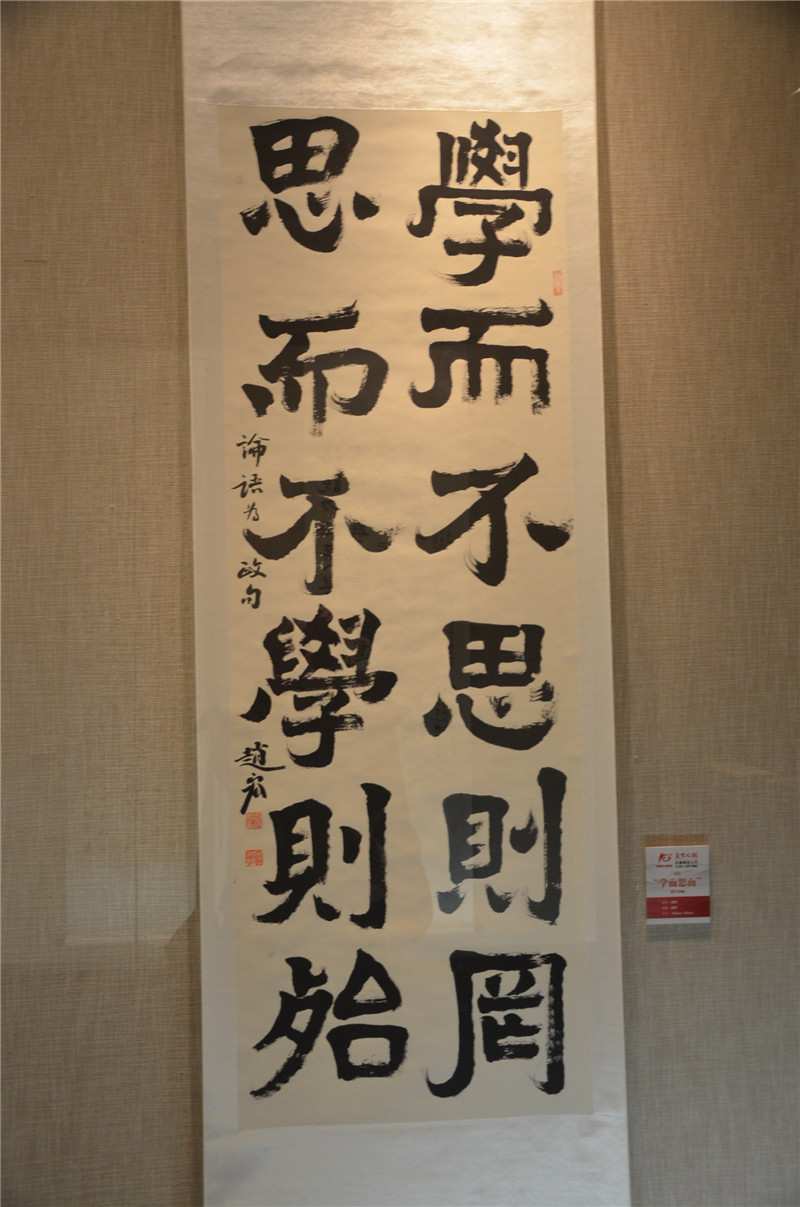 學而不思則罔
思而不學則殆
論語为政句
趙宏
"学而思而"